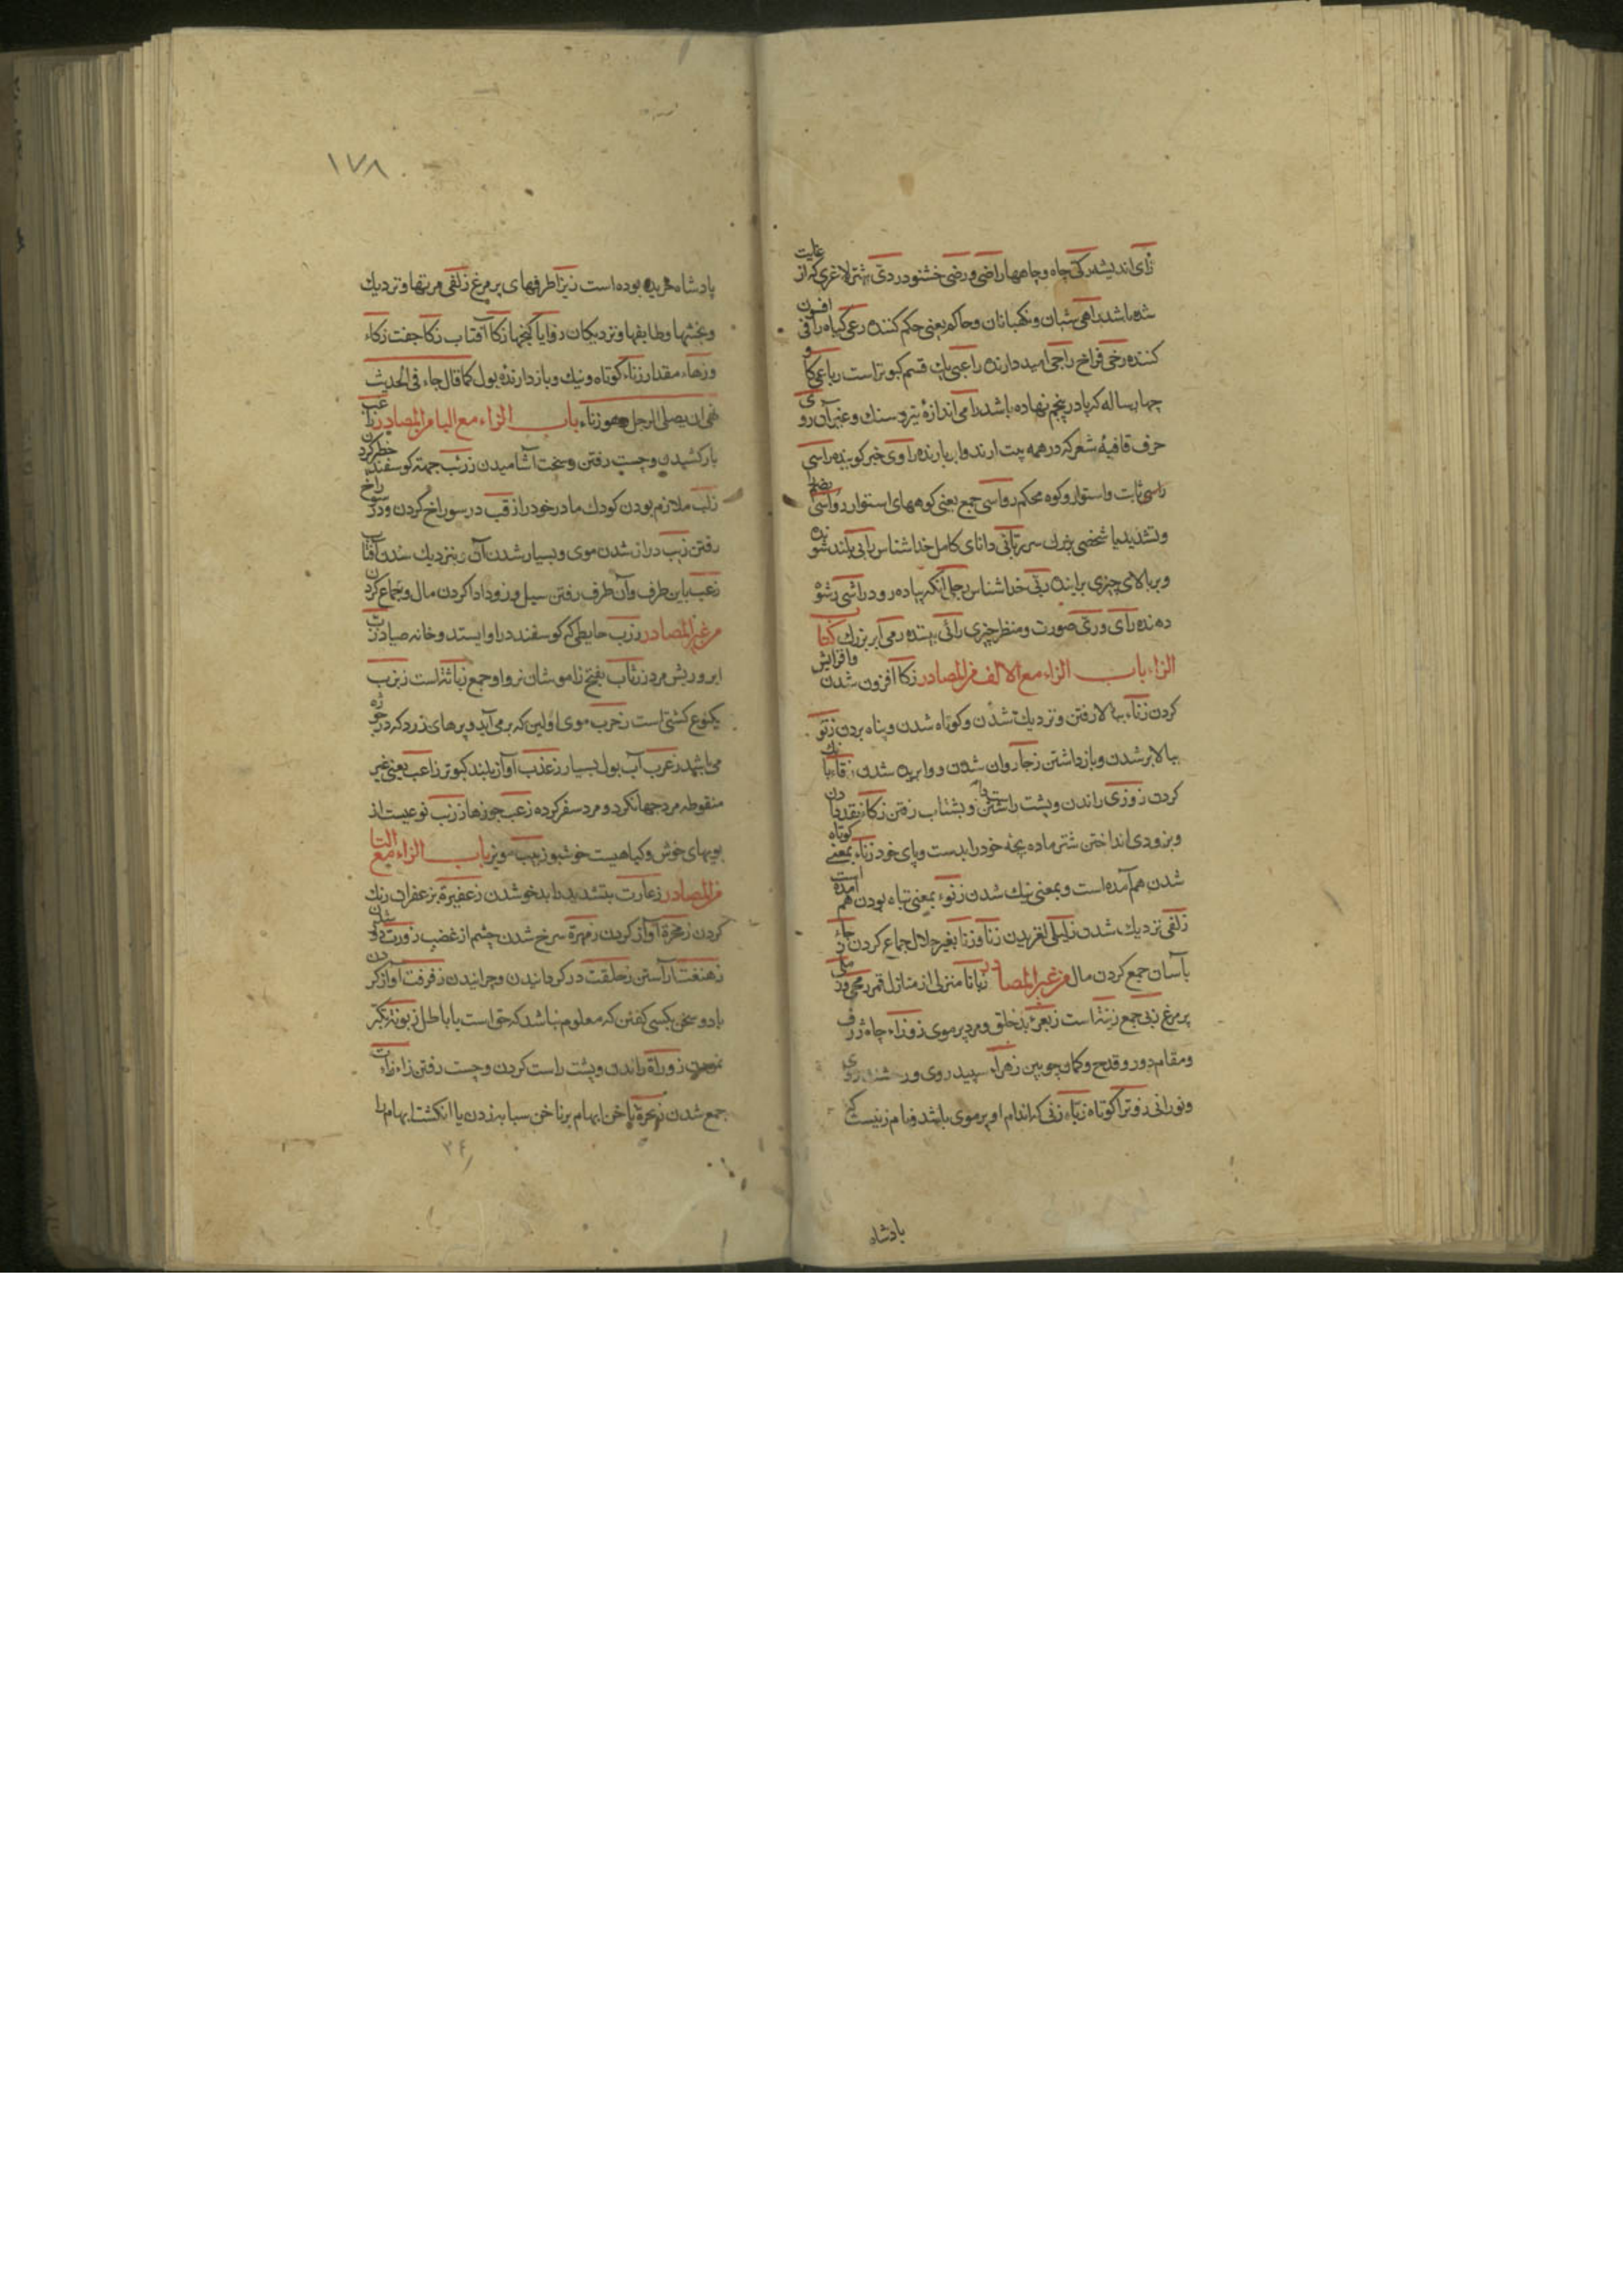 رأی اندیشه رکی چاه و چاهها راضی و رضی خشنود ردی شتر لاغری که از غایت
شده باشد راعی شبان و نکهبانان و حاکم یعنی حکم کننده رعی کیاه راقی افسون
کننده رخی فراخ راجی امید دارنده راعبی یک قسم کبوتر است رباعی کا و
چهار ساله که پا در پنجم نهاده باشد رامی اندازهٔ تیر و سنك و غیر آن روی
حرف قافیهٔ شعر که در همه بیت ارند و ابر بارنده راوی خبر کوینده راسی
راسی ثابت و استوار و کوه محکم رواسی جمع یعنی کوههای استوار رواسی بضم را
و تشدید یا شخصی بزرك سر ربانی دانای کامل خدا شناس رابی بلند شونده
و بر بالای چیزی براینده ربی خدا شناس رجلی آنکه پیاده رود راشی رشوه
دهنده رأی و رئی صورت و منظر چیزی رائی بیننده رمی ابر بزرك کتاب
الزاء باب الزاء مع الالف من المصادر زکا افزون شدن و افزایش
کردن زناء ببالا رفتن و نزدیك شدن و کوتاه شدن و پناه بردن زنو
ببالا بر شدن و باز داشتن زجا روان شدن و روا بریده شدن زقاء بانك
کردن زوزی راندن و پشت راست داشتن و بشتاب رفتن زکاء نقد دادن
و بزودی انداختن شتر ماده بچه خود را بدست و پای خود زناء بمعنی کوتاه
شدن هم آمده است و بمعنی نیك شدن زنوء بمعنی تباه بودن هم آمده است
زلفی نزدیك شدن زلیلی لغزیدن زنا و زنا بغیر حلال جماع کردن
بآسان جمع کردن مال من غیر المصادر زبانا منزلی از منازل قمر
پر مرغ زبی جمع زبیة است زبعری بد خلق و مرد پر موی زوزاء چاه ژرف
و مقام دور و قدح و کمان چوبین زهراء سپید روی و روشن روی
و نورانی زونرا کوتاه زباء زنی که اندام او پر موی باشد و نام زنیست که
پادشاه
۱۷۸
پادشاه جزیره بوده است نیز اطرفهای پر مرغ زلفی مرتبها و نزدیك
و بخشها و طایفها و نزدیکان زوایا کنجها زکا آفتاب زکا جفت زکاء
و زهاء مقدار زناء کوتاه و نیك و باز دارندهٔ بول کما قال جاء فی الحدیث
نهی ان یصلی الرجل وهو زناء باب الزاء مع الباء من المصادر زأب
بار کشیدن و چست رفتن و سخت آشامیدن زرب جهت کوسفند خطر کردن
زلب ملازم بودن کودك مادر خود را زقب در سوراخ کردن و در سوراخ
رفتن زبب دراز شدن موی و بسیار شدن آن و بنزدیك شدن آفتاب
زعب باین طرف و آن طرف رفتن سیل و زود ادا کردن مال و جماع کردن
من غیر المصادر زرب حایطی که کوسفند در او ایستد و خانه صیاد
ابرو و ریش مرد زباب بفتح زا موشان نر و او جمع زبابة است زبزب
یکنوع کشتی است زخرب موی اولین که بر می آید و پرهای زرد که در جوژه
می باشد زعرب آب بول بسیار زعذب آواز بلند کبوتر زاعب یعنی غیر
منقوطه مرد جهانکرد و مرد سفر کرده زعب جوزها زرنب نوعیست از
بویهای خوش و کیاهیست خوشبو زبیب مویز باب الزاء مع التا
من المصادر زعارت بتشدید را بدخو شدن زعفرة بزعفران رنك
کردن زمخرة آواز کردن زمهرة سرخ شدن چشم از غضب زورت
زهنغت آراستن زحلقت در کردانیدن و چرانیدن زفرفت آواز کردن
باد و سخن بکسی کفتن که معلوم نباشد که حق است یا باطل زبونة تکبر
نمودن زوزاة راندن و پشت راست کردن و چست رفتن زأزأت
جمع شدن زنجرة ناخن ابهام بر ناخن سبابه زدن یا انکشت ابهام را
۳۶